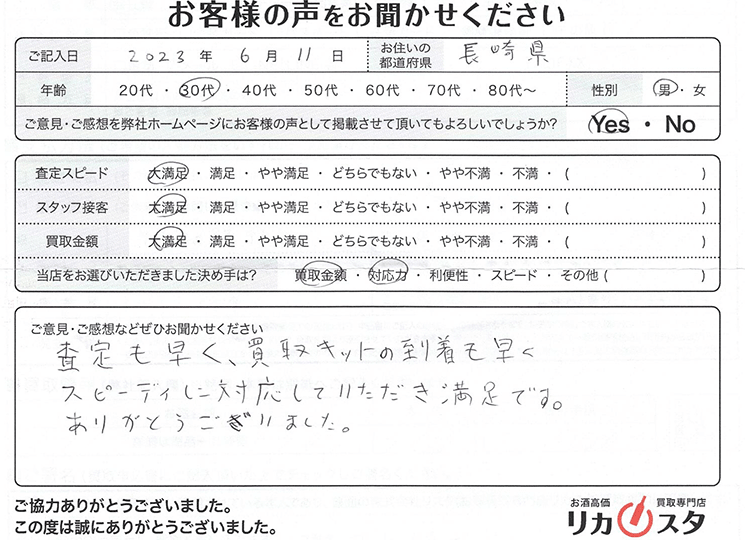 お客様の声をお聞かせください
ご記入日 2023 年 6 月 11 日 お住いの都道府県 長崎県
年齢 20代 ・ 30代 ・ 40代 ・ 50代 ・ 60代 ・ 70代 ・ 80代〜 性別 男 ・ 女
ご意見・ご感想を弊社ホームページにお客様の声として掲載させて頂いてもよろしいでしょうか? Yes ・ No
査定スピード 大満足 ・ 満足 ・ やや満足 ・ どちらでもない ・ やや不満 ・ 不満 ・ ( )
スタッフ接客 大満足 ・ 満足 ・ やや満足 ・ どちらでもない ・ やや不満 ・ 不満 ・ ( )
買取金額 大満足 ・ 満足 ・ やや満足 ・ どちらでもない ・ やや不満 ・ 不満 ・ ( )
当店をお選びいただきました決め手は? 買取金額 ・ 対応力 ・ 利便性 ・ スピード ・ その他 ( )
ご意見・ご感想などぜひお聞かせください
査定も早く、買取キットの到着も早く
スピーディに対応していただき満足です。
ありがとうございました。
ご協力ありがとうございました。
この度は誠にありがとうございました。
お酒高価 買取専門店
リカスタ